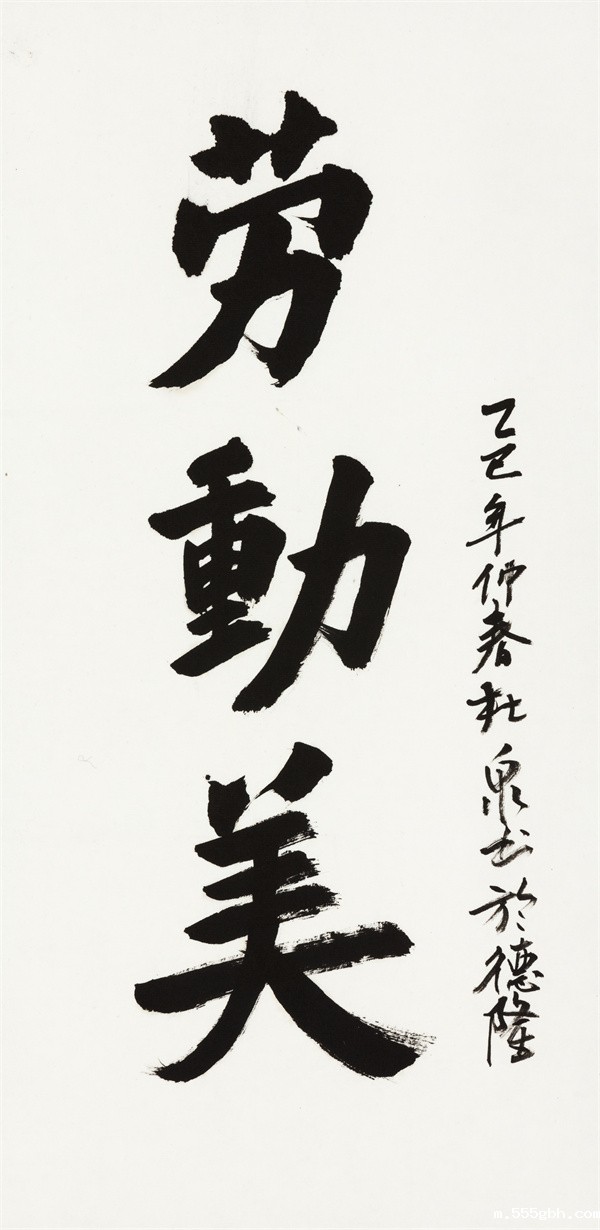 劳動美
乙巳年仲春杜泉书於德隆
m.555ghh.com